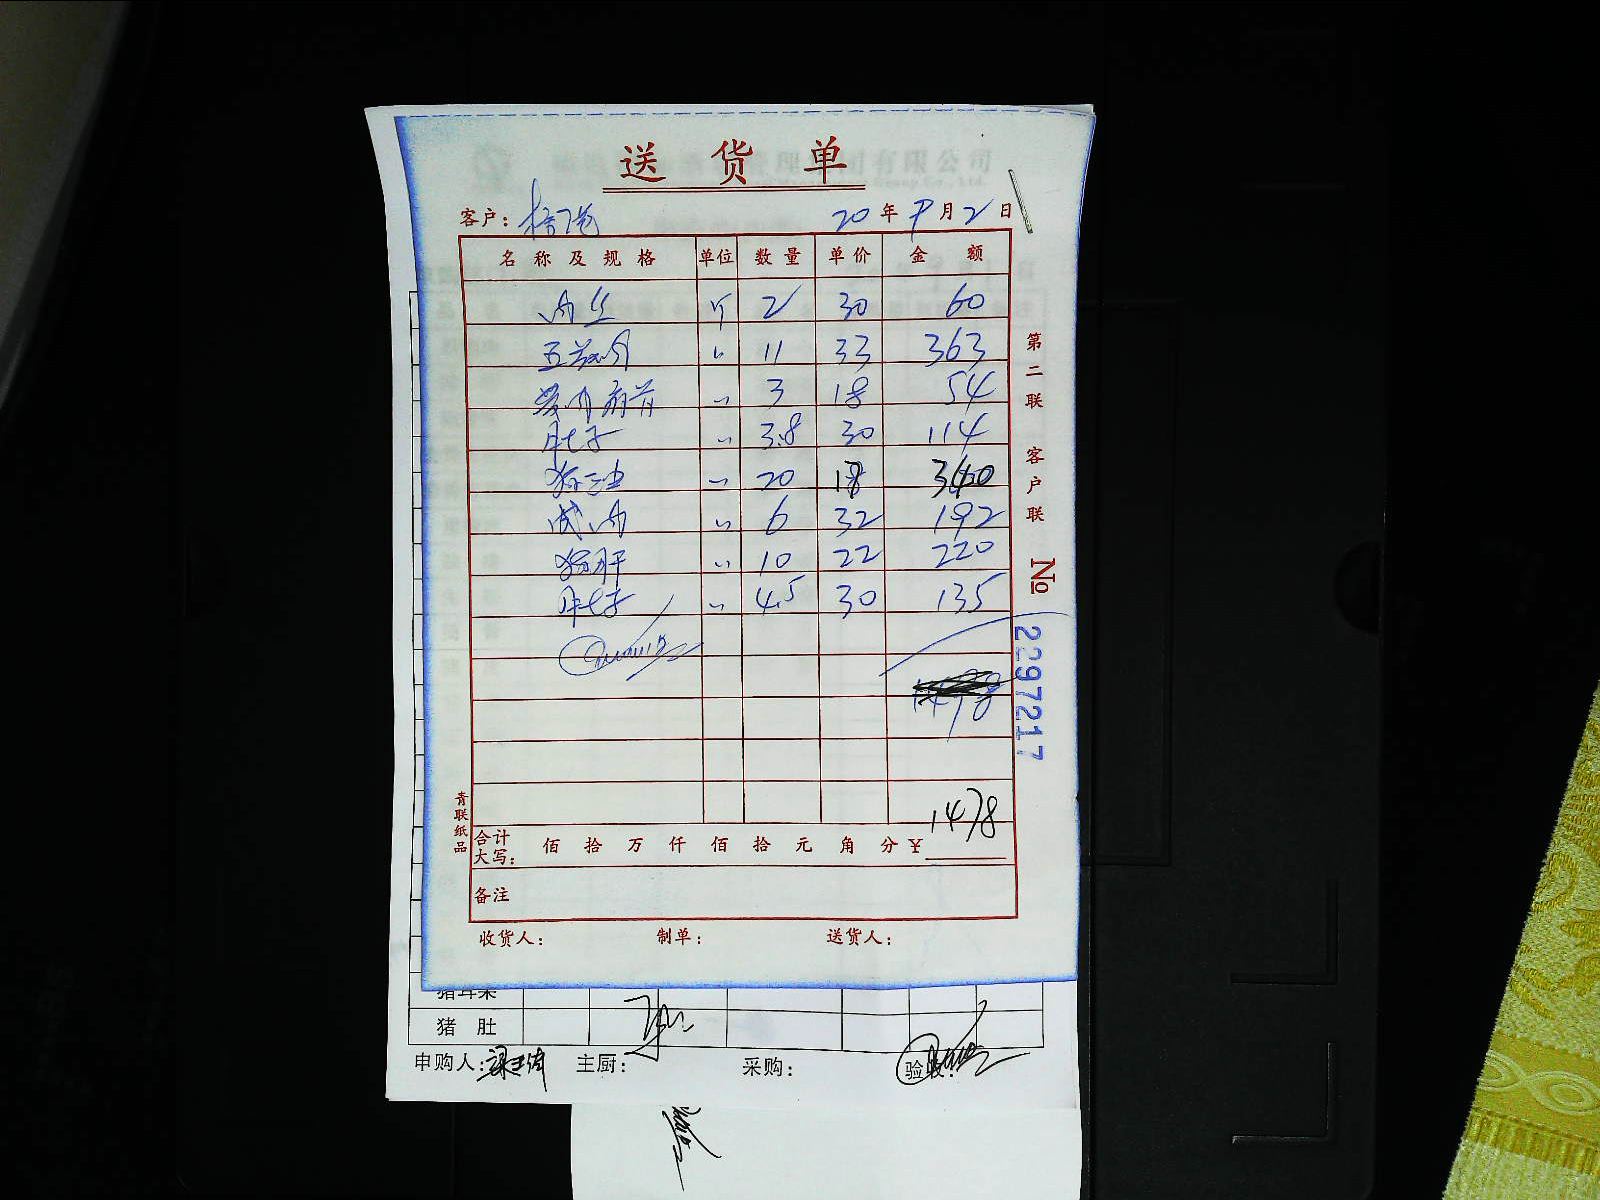 送 货 单
客户：
20 年 9 月 2 日
名 称 及 规 格 单位 数 量 单 价 金 额
肉丝 斤 2 30 60
五花肉 〃 11 33 363
〃 3 18 54
肚子 〃 3.8 30 114
猪油 〃 20 340
肉 〃 6 32 192
猪肝 〃 10 22 220
肚子 〃 4.5 30 135
1478
合计
大写： 佰 拾 万 仟 佰 拾 元 角 分 ¥
备注
收货人： 制单： 送货人：
第二联 客户联
No 2297217
青联纸品
猪 肚
申购人： 主厨： 采购： 验收：